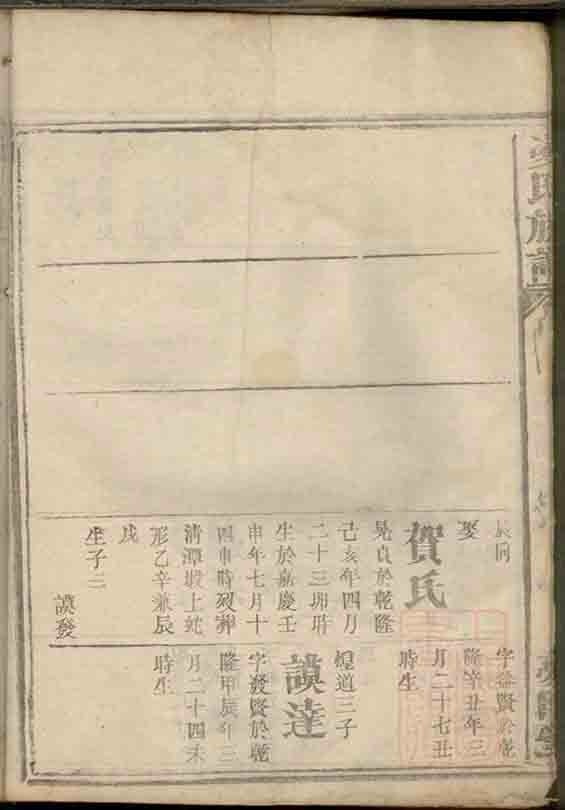 氏族譜
辰向
娶
賀氏
晃貞於乾隆
己亥年四月
二十三卯時
生於嘉慶壬
申年七月十
四申時歿葬
清潭塅上蛇
形乙辛兼辰
戌
生子二
謨發
字 賢於乾
隆辛丑年三
月二十七丑
時生
煌道三子
謨達
字發賢於乾
隆甲辰年三
月二十四未
時生